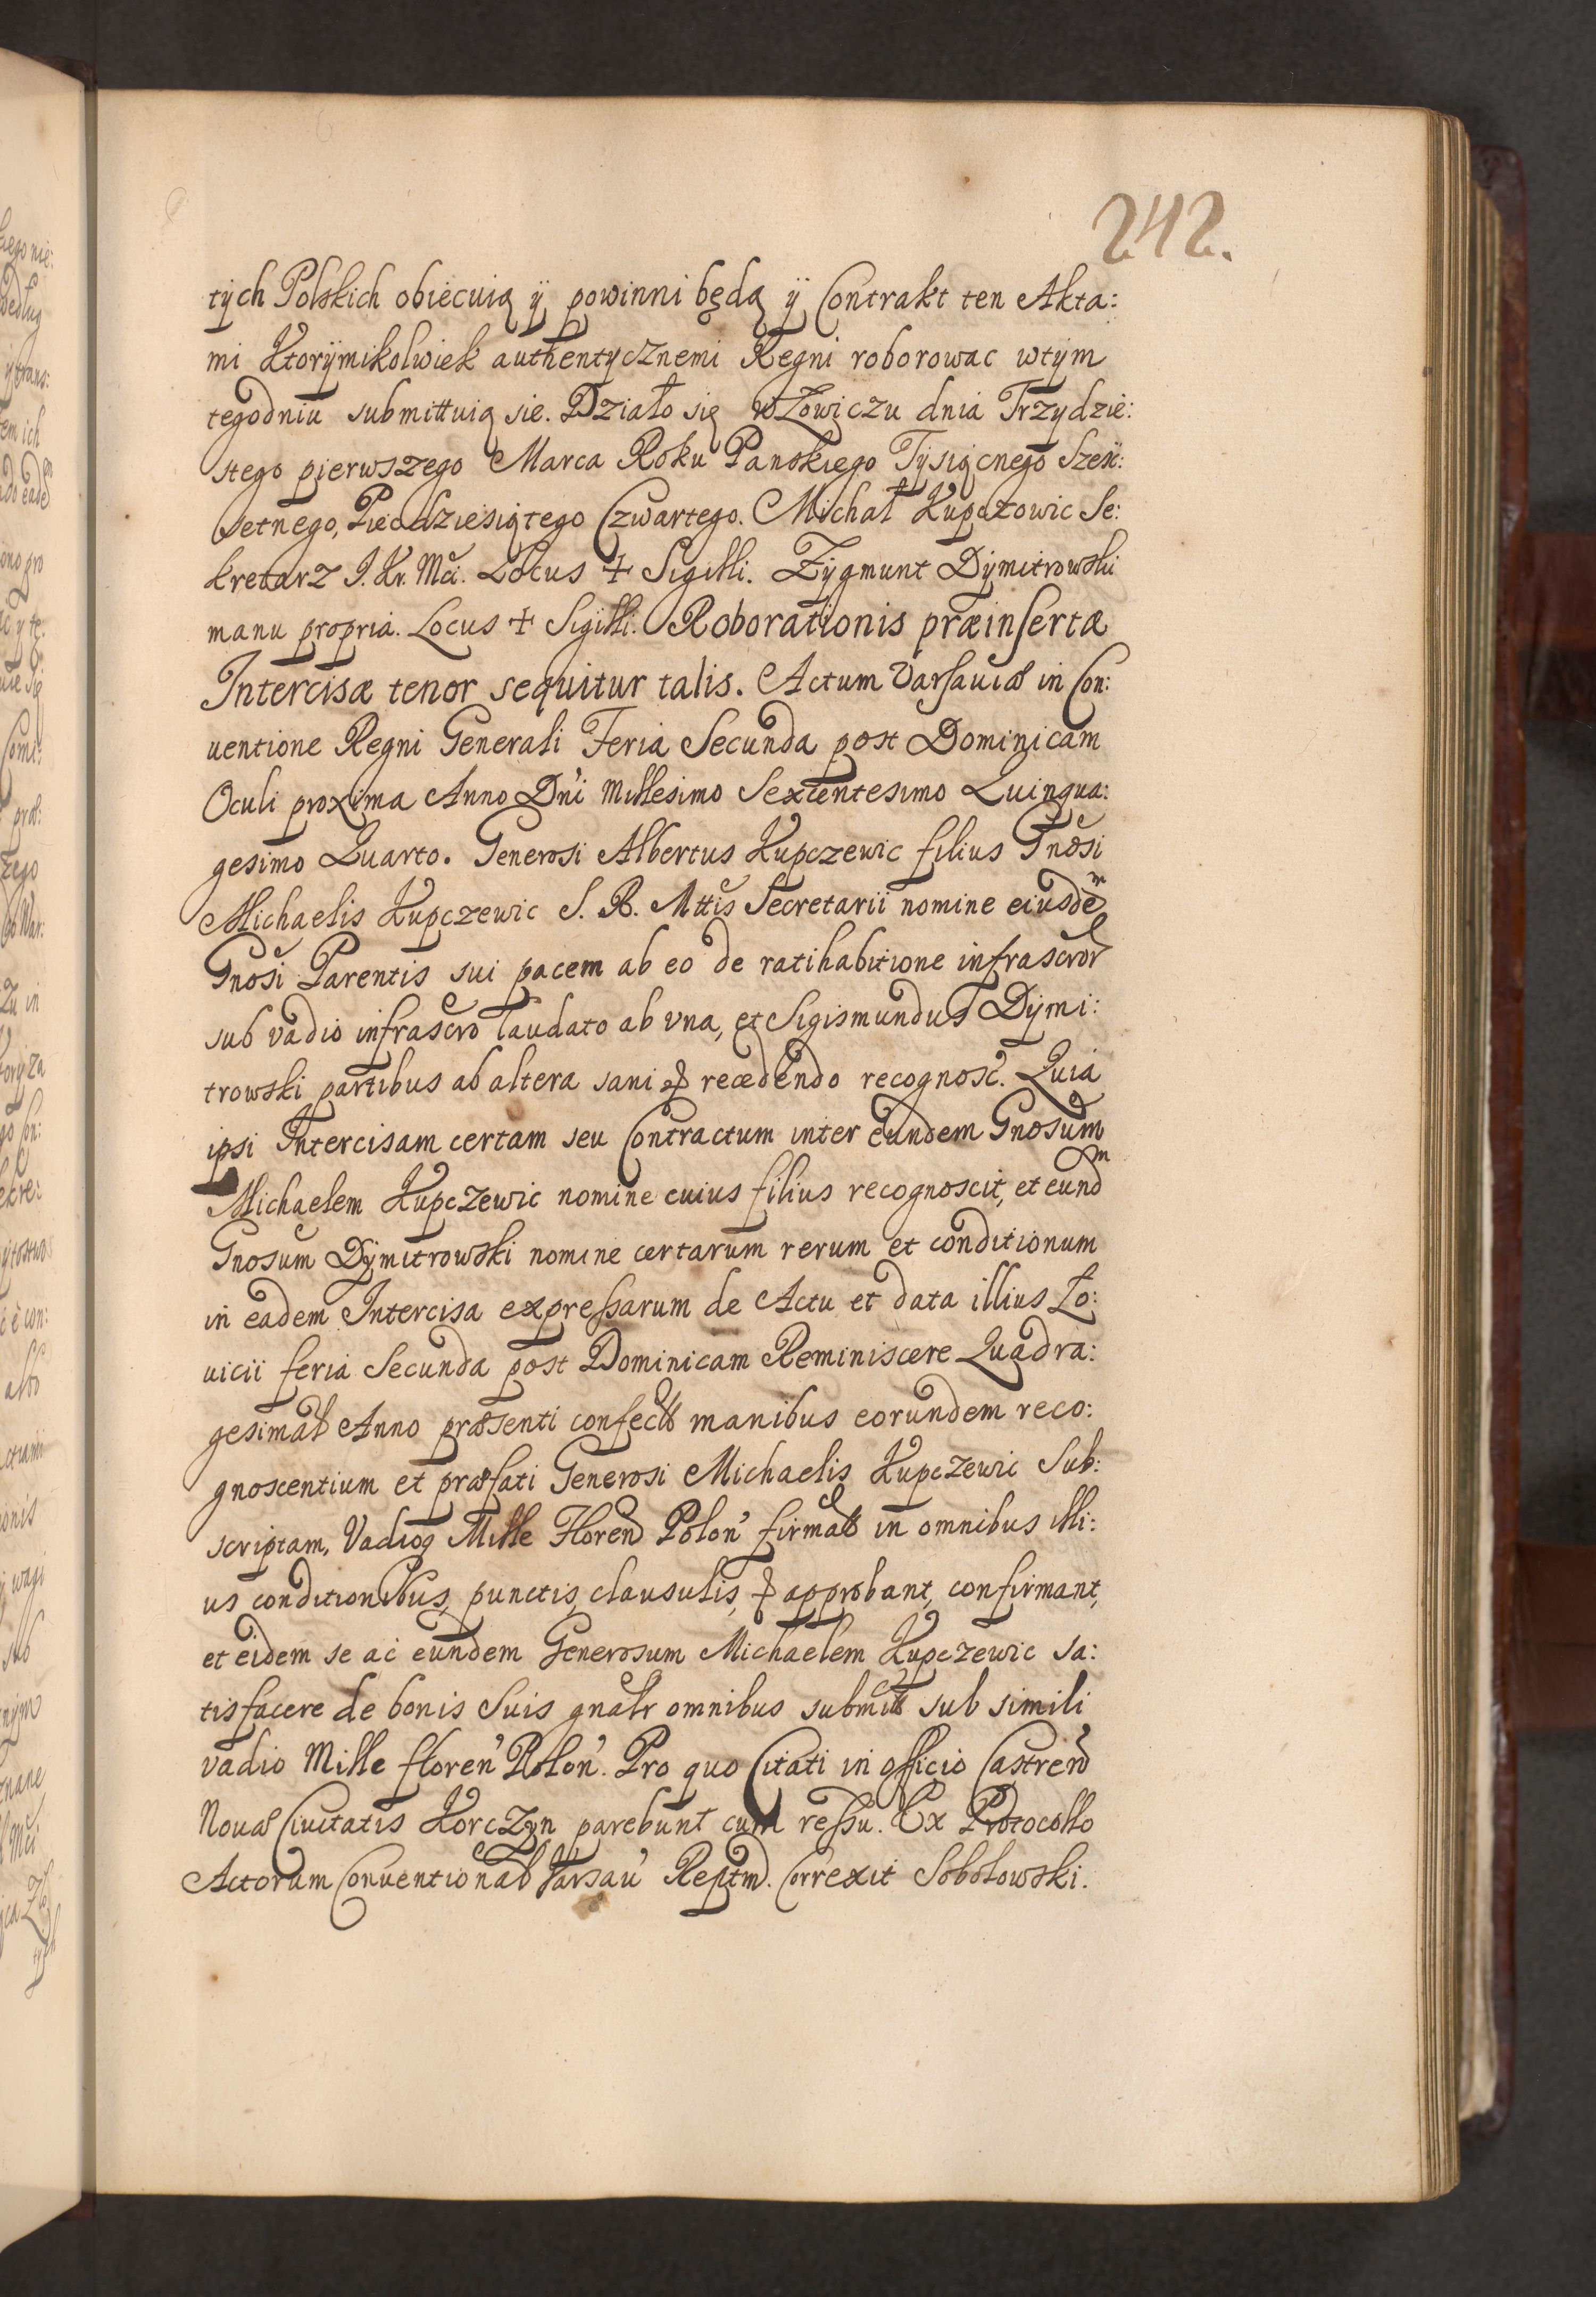 242.
tych Polskich obiecuią ÿ powinni będą ÿ Contrakt ten Akta:
mi Ktorÿmikolwiek authentycznemi Regni roborowac wtÿm
tegodniu submittuią sie. Działo się w Łowiczu dnia Trzydzie:
stego pierwszego Marca Roku Panskiego Tysiącnego Szesc:
setnego, Piecdziesiątego Czwartego. Michał Kupczowic Se:
kretarz J. Kr. Mci. Locus + Sigilli. Zygmunt Dÿmitrowski
manu propria. Locus + Sigilli. Roborationis præinsertæ
Intercisæ tenor sequitur talis. Actum Varsauiæ in Con:
uentione Regni Generali Feria Secunda post Dominicam
Oculi proxima Anno Dni Millesimo Sexcentesimo Quinqua:
gesimo Quarto. Generosi Albertus Kupczewic filius Gnosi
Michaelis Kupczewic S. R. Mttis Secretarii nomine eiusdem
Gnosi Parentis sui pacem ab eo de ratihabitione infrascror
sub vadio infrascro laudato ab vna, et Sigismundus Dÿmi:
trowski partibus ab altera sani & recedendo recognosc. Quia
ipsi Intercisam certam seu Contractum inter eundem Gnosum
Michaelem Kupczewic nomine cuius filius recognoscit, et eundm
Gnosum Dÿmitrowski nomine certarum rerum et conditionum
in eadem Intercisa expressarum de Actu et data illius Lo:
uicii feria Secunda post Dominicam Reminiscere Quadra:
gesimal Anno præsenti confect manibus eorundem reco:
gnoscentium et præfati Generosi Michaelis Kupczewic Sub:
scriptam, Vadioq Mille Floren Polon firmat in omnibus illi:
us conditionibus, punctis, clausulis, & approbant, confirmant,
et eidem se ac eundem Generosum Michaelem Kupczewic sa:
tisfacere de bonis Suis gnalr omnibus submitt sub simili
vadio Mille floren Polon. Pro quo Citati in officio Castren
Nouæ Ciuitatis Korczyn parebunt cum ressu. Ex Protocollo
Actorum Conuentional Varsau Reptm. Correxit Sobolowski.